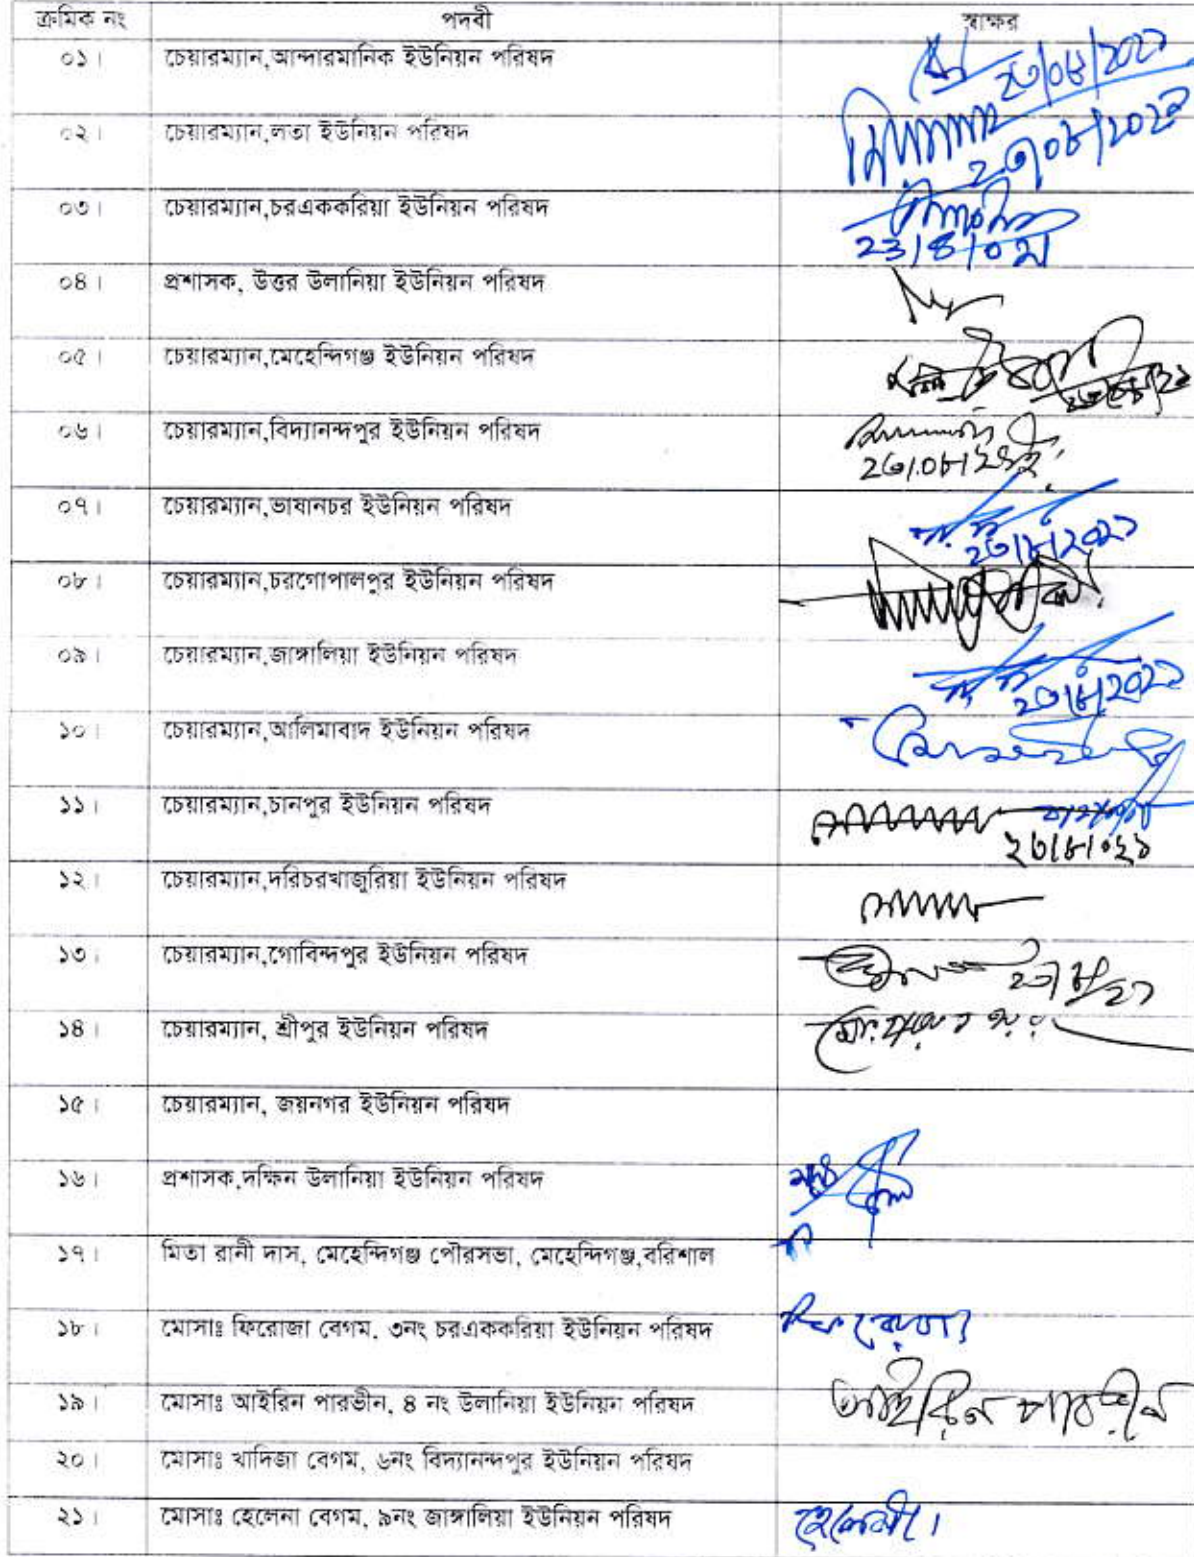 ক্রমিক নং পদবী স্বাক্ষর
০১। চেয়ারম্যান,আন্দারমানিক ইউনিয়ন পরিষদ ২৩/০৮/২০২১
০২। চেয়ারম্যান,লতা ইউনিয়ন পরিষদ ২৩/০৮/২০২১
০৩। চেয়ারম্যান,চরএককরিয়া ইউনিয়ন পরিষদ 23/8/021
০৪। প্রশাসক, উত্তর উলানিয়া ইউনিয়ন পরিষদ
০৫। চেয়ারম্যান,মেহেন্দিগঞ্জ ইউনিয়ন পরিষদ
০৬। চেয়ারম্যান,বিদ্যানন্দপুর ইউনিয়ন পরিষদ
০৭। চেয়ারম্যান,ভাষানচর ইউনিয়ন পরিষদ ২৩/৮/২০২১
০৮। চেয়ারম্যান,চরগোপালপুর ইউনিয়ন পরিষদ
০৯। চেয়ারম্যান,জাঙ্গালিয়া ইউনিয়ন পরিষদ ২৩/৮/২০২১
১০। চেয়ারম্যান,আলিমাবাদ ইউনিয়ন পরিষদ
১১। চেয়ারম্যান,চানপুর ইউনিয়ন পরিষদ ২৩/৮/০২১
১২। চেয়ারম্যান,দরিচরখাজুরিয়া ইউনিয়ন পরিষদ
১৩। চেয়ারম্যান,গোবিন্দপুর ইউনিয়ন পরিষদ ২৩/৮/২১
১৪। চেয়ারম্যান, শ্রীপুর ইউনিয়ন পরিষদ
১৫। চেয়ারম্যান, জয়নগর ইউনিয়ন পরিষদ
১৬। প্রশাসক,দক্ষিন উলানিয়া ইউনিয়ন পরিষদ
১৭। মিতা রানী দাস, মেহেন্দিগঞ্জ পৌরসভা, মেহেন্দিগঞ্জ,বরিশাল
১৮। মোসাঃ ফিরোজা বেগম, ৩নং চরএককরিয়া ইউনিয়ন পরিষদ
১৯। মোসাঃ আইরিন পারভীন, ৪ নং উলানিয়া ইউনিয়ন পরিষদ আইরিন পারভীন
২০। মোসাঃ খাদিজা বেগম, ৬নং বিদ্যানন্দপুর ইউনিয়ন পরিষদ
২১। মোসাঃ হেলেনা বেগম, ৯নং জাঙ্গালিয়া ইউনিয়ন পরিষদ